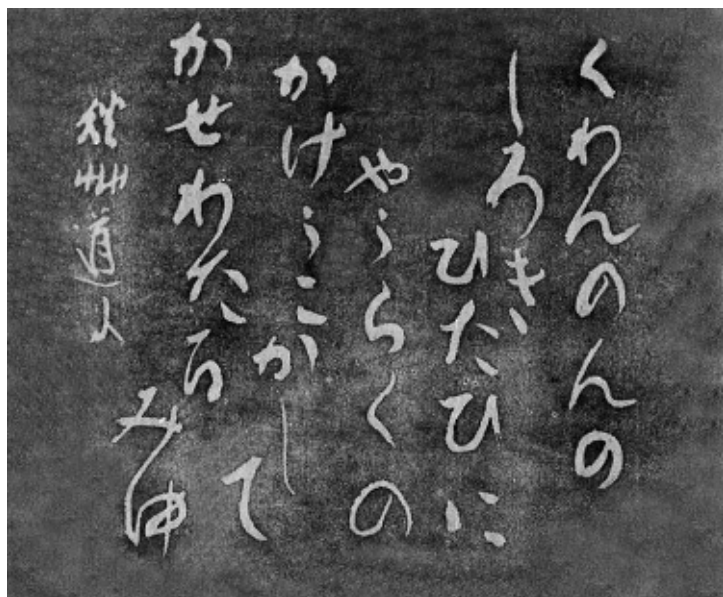 くわんのんの
しろき
ひたひに
やうらくの
かけうこかし
て
かせわたる
みゆ
秋艸道人